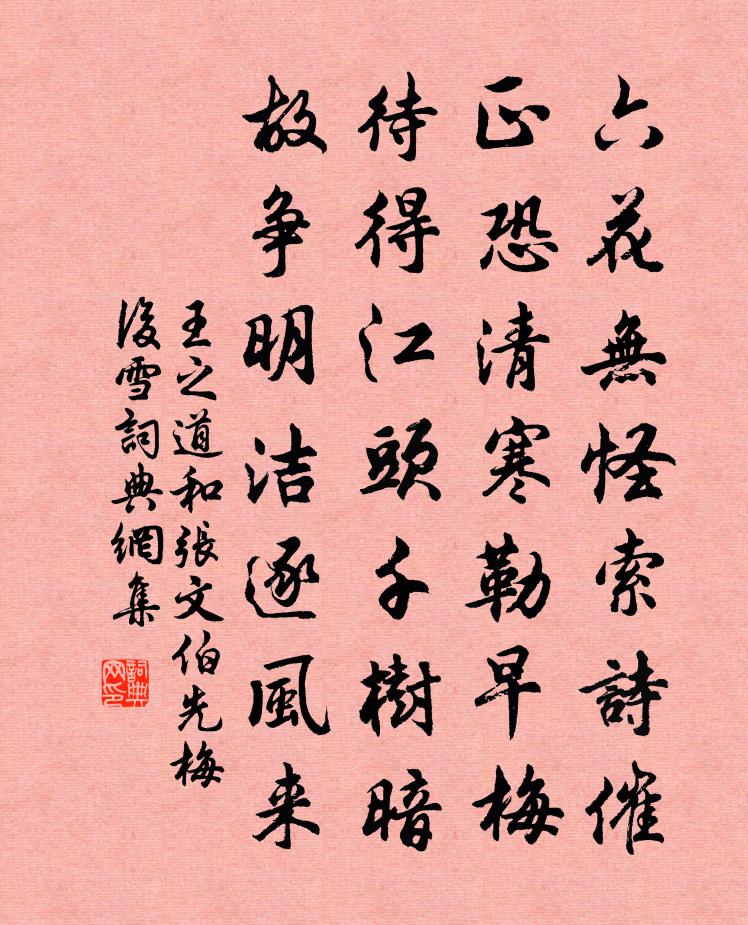 六花無怪索詩催
正恐清寒勒早梅
待得江頭千樹暗
故争明洁逐風来
王之道和張文伯先梅
後雪詞典網集
詞典
网印